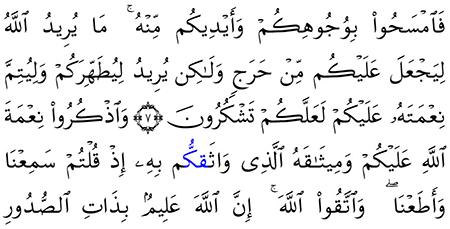 فَٱمْسَحُوا۟ بِوُجُوهِكُمْ وَأَيْدِيكُم مِّنْهُ ۚ مَا يُرِيدُ ٱللَّهُ
لِيَجْعَلَ عَلَيْكُم مِّنْ حَرَجٍ وَلَٰكِن يُرِيدُ لِيُطَهِّرَكُمْ وَلِيُتِمَّ
نِعْمَتَهُۥ عَلَيْكُمْ لَعَلَّكُمْ تَشْكُرُونَ ﴿٧﴾ وَٱذْكُرُوا۟ نِعْمَةَ
ٱللَّهِ عَلَيْكُمْ وَمِيثَٰقَهُ ٱلَّذِى وَاثَقكُّم بِهِۦ إِذْ قُلْتُمْ سَمِعْنَا
وَأَطَعْنَا ۖ وَٱتَّقُوا۟ ٱللَّهَ ۚ إِنَّ ٱللَّهَ عَلِيمٌۢ بِذَاتِ ٱلصُّدُورِ